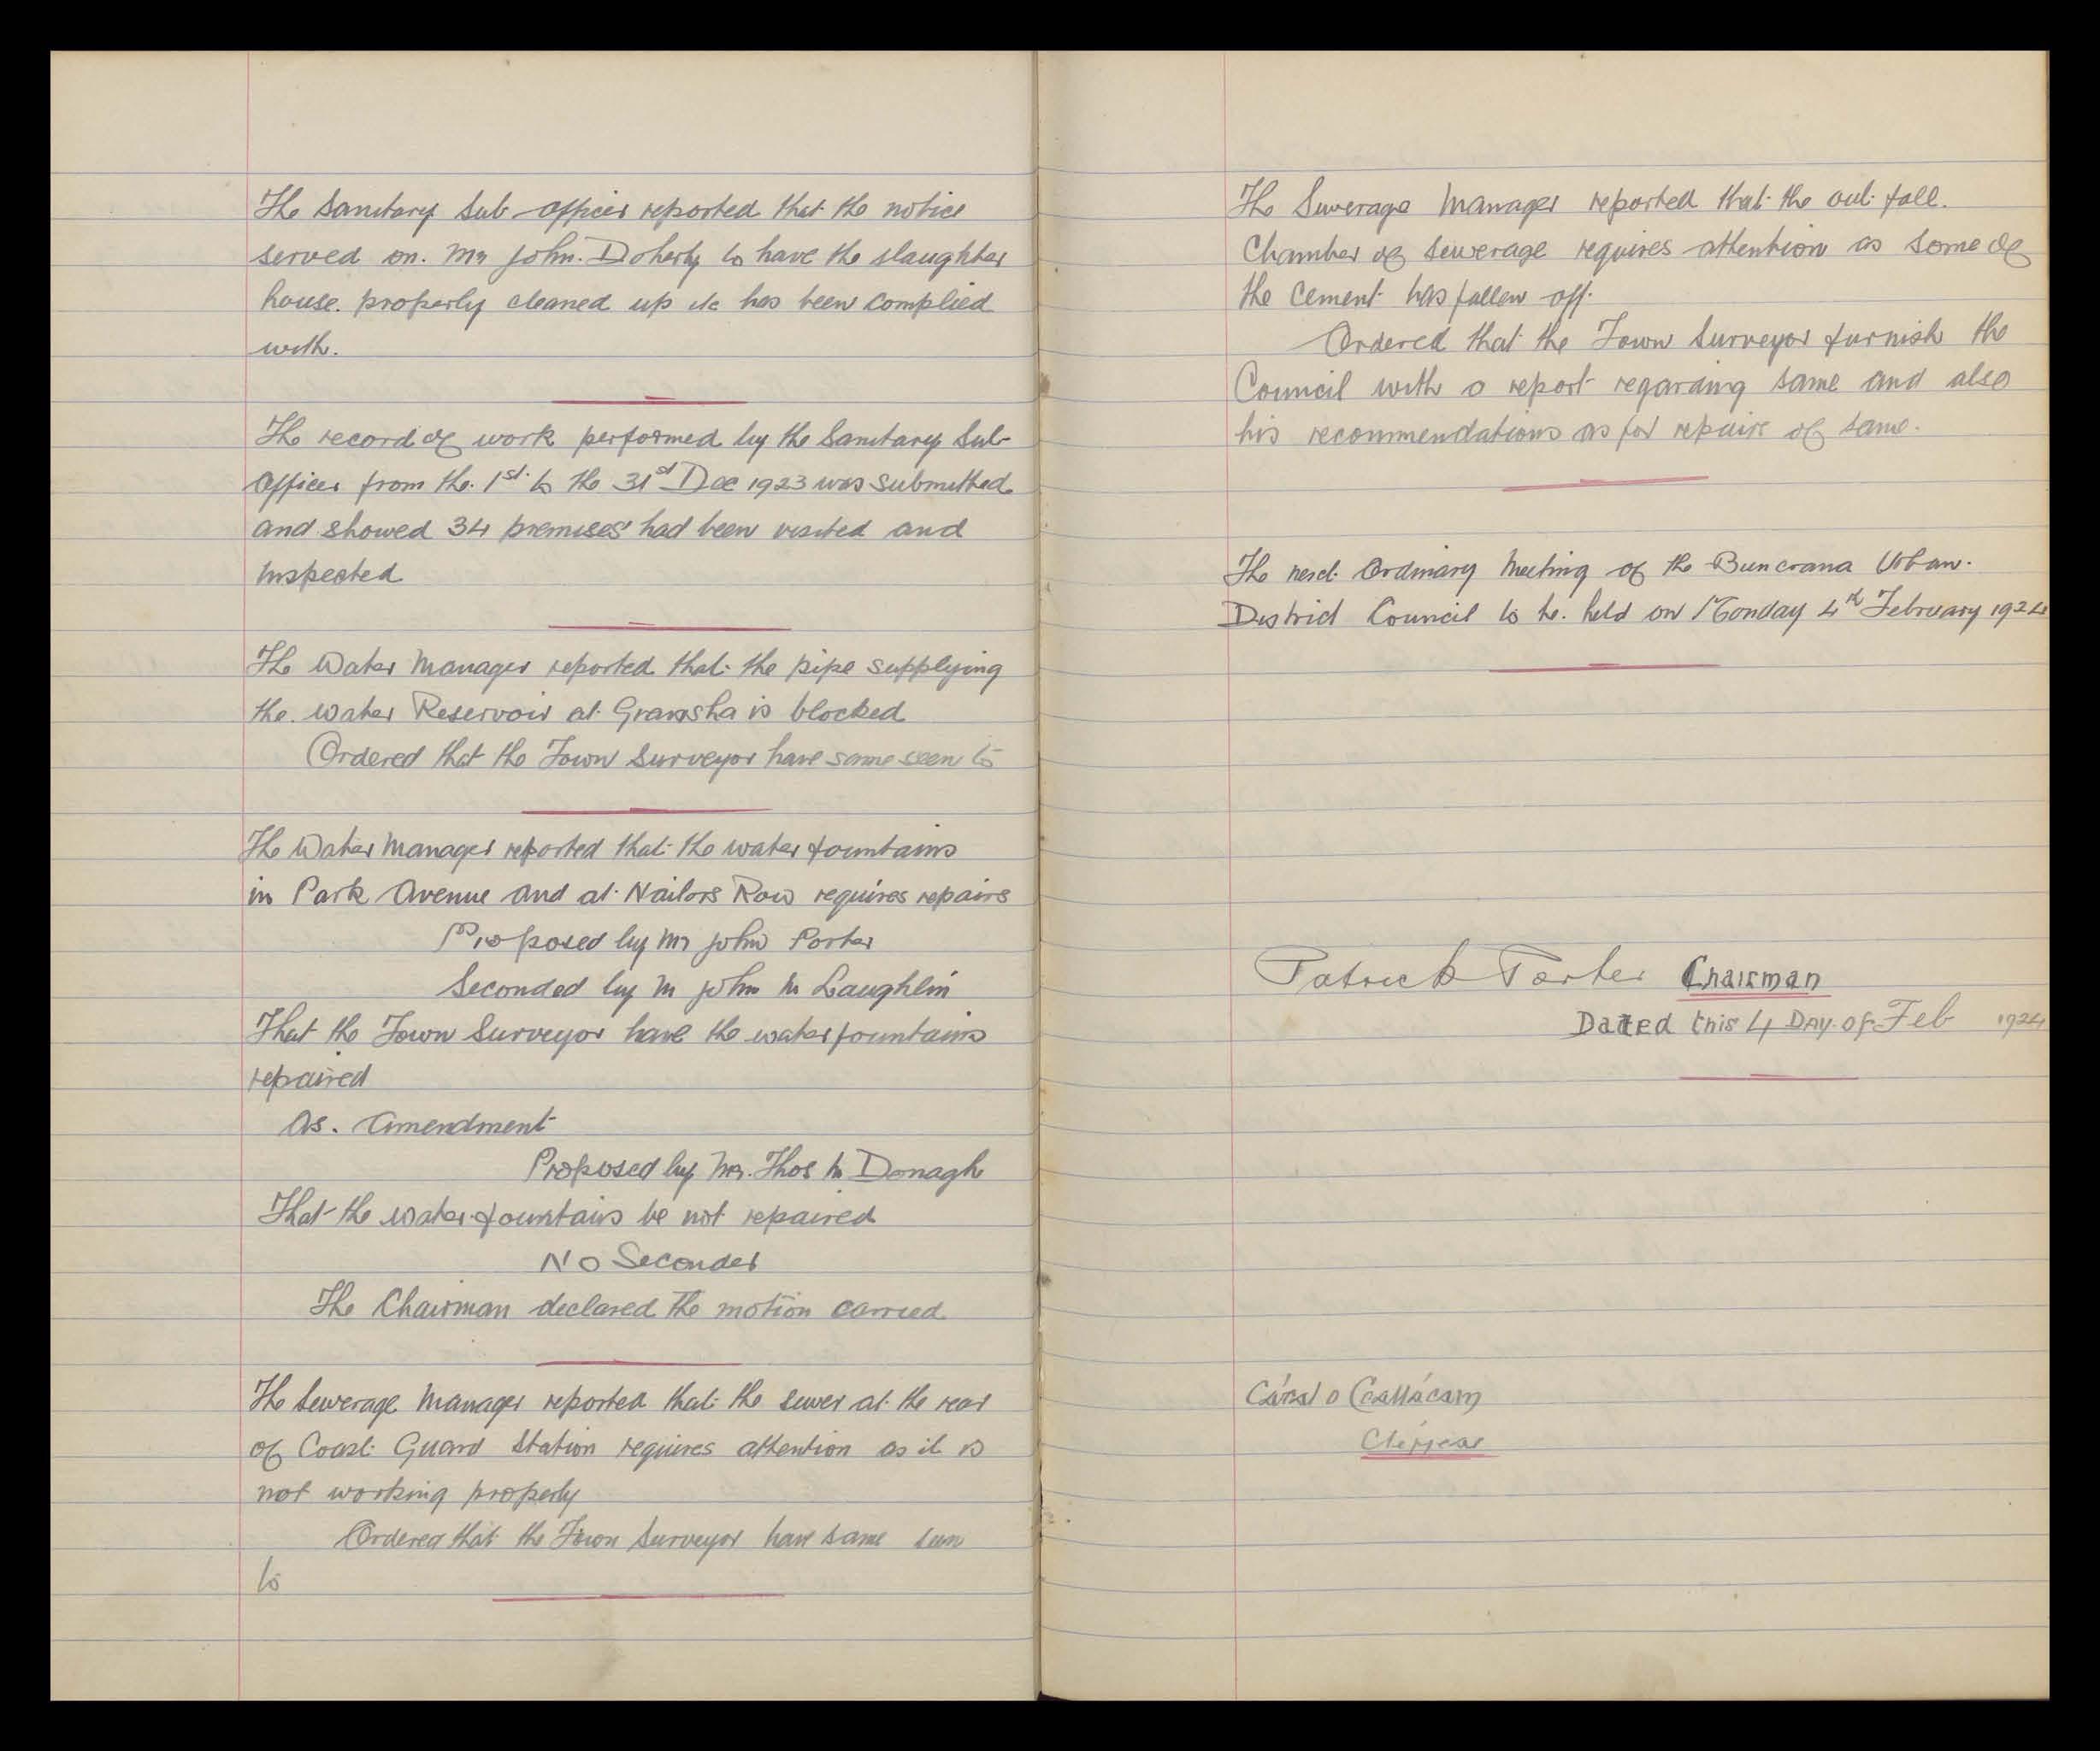 The Sanitary Sub-Officer reported that the notice
served on. Mr John. Doherty to have the slaughter
house. properly cleaned up etc has been complied
with.
The record of work performed by the Sanitary Sub-
Officer from the. 1st. to the 31st Dec 1923 was submitted
and showed 34 premises had been visited and
Inspected
The Water Manager reported that the pipe supplying
the. Water Reservoir at Gransha is blocked
Ordered that the Town Surveyor have same seen to
The Water Manager reported that the water fountains
in Park Avenue and at Nailors Row requires repairs
Proposed by Mr John Porter
Seconded by Mr John Mc Laughlin
That the Town Surveyor have the water fountains
repaired
As. Amendment
Proposed by Mr. Thos Mc Donagh
That the water fountains be not repaired
No Seconder
The Chairman declared the motion carried
The Sewerage Manager reported that the sewer at the rear
of Coast Guard Station requires attention as it is
not working properly
Ordered that the Town Surveyor have same seen
to
The Sewerage Manager reported that the out fall.
Chamber of Sewerage requires attention as some of
the Cement has fallen off.
Ordered that the Town Surveyor furnish the
Council with a report regarding same and also
his recommendations as for repairs of same.
The next Ordinary Meeting of the Buncrana Urban.
District Council to be. held on Monday 4th February 1924
Patrick Porter Chairman
Dated this 4 Day of Feb 1924